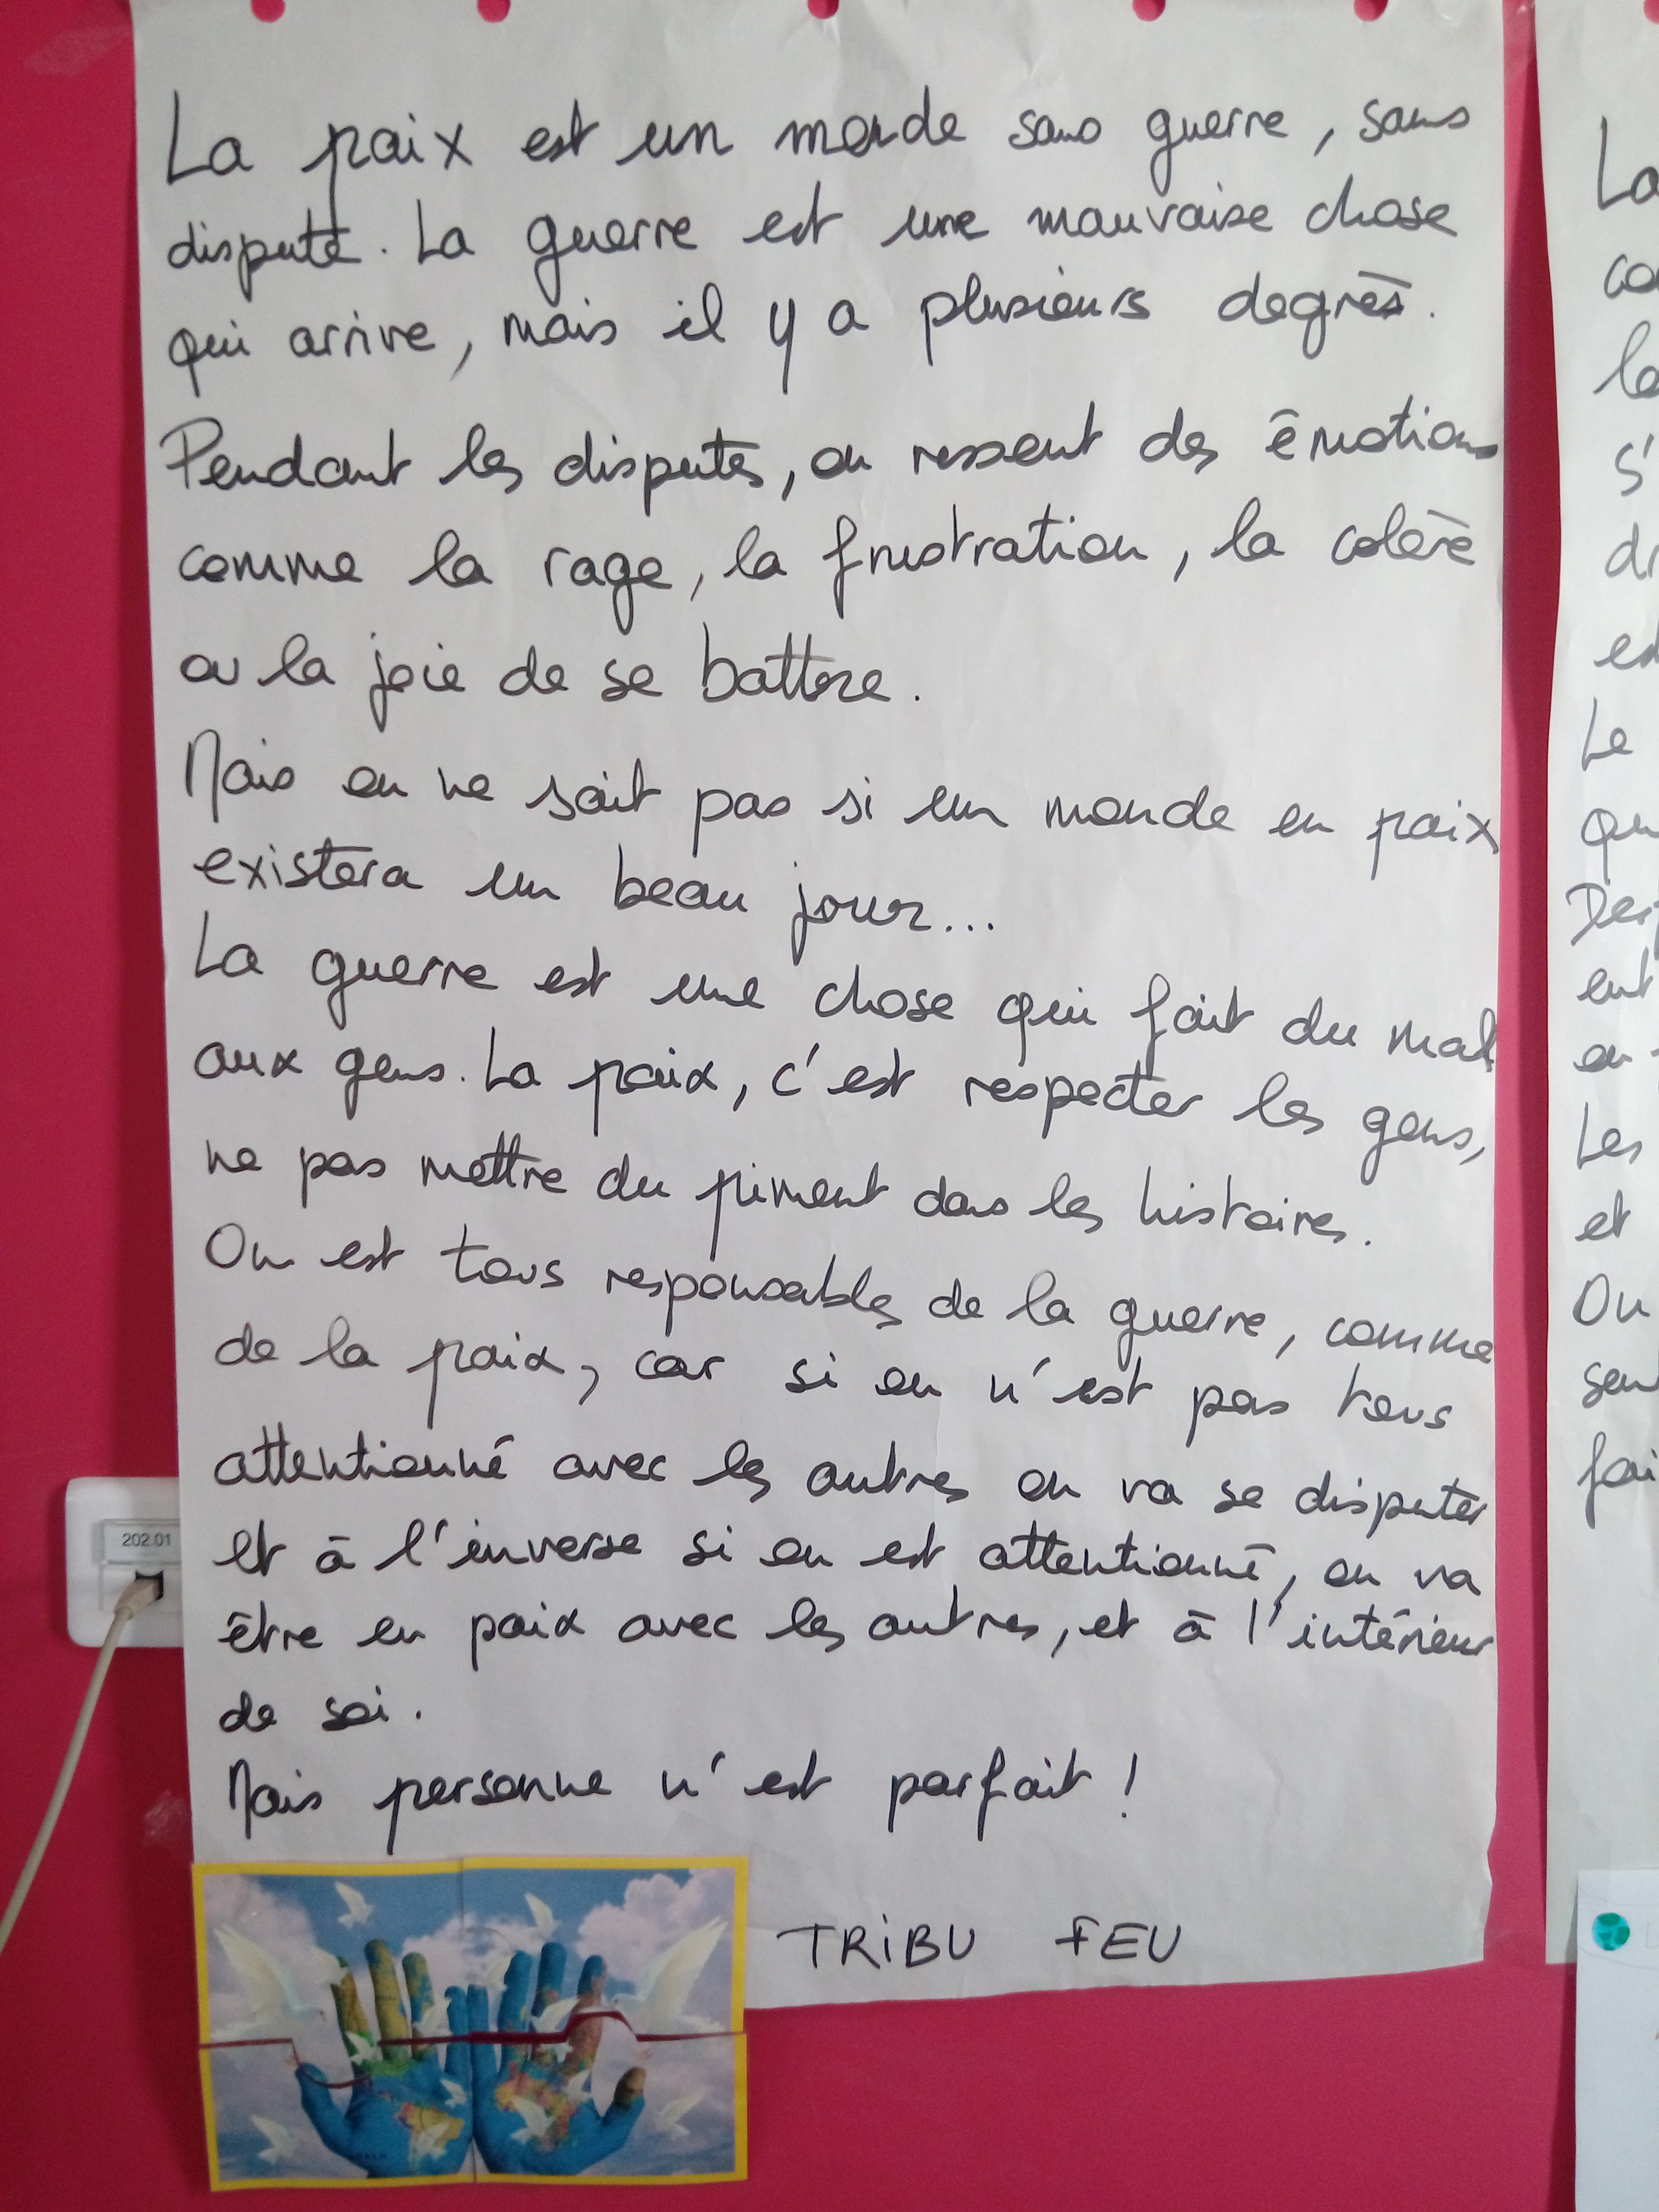 La paix est un monde sans guerre, sans
dispute. La guerre est une mauvaise chose
qui arrive, mais il y a plusieurs degrés.
Pendant les disputes, on ressent des émotions
comme la rage, la frustration, la colère
ou la joie de se battre.
Mais on ne sait pas si un monde en paix
existera un beau jour...
La guerre est une chose qui fait du mal
aux gens. La paix, c'est respecter les gens,
ne pas mettre du piment dans les histoires.
On est tous responsables de la guerre, comme
de la paix, car si on n'est pas tous
attentionné avec les autres on va se disputer
et à l'inverse si on est attentionné, on va
être en paix avec les autres, et à l'intérieur
de soi.
Mais personne n'est parfait !
TRiBU FEU
202.01
La
s'
Le
Les
et
On